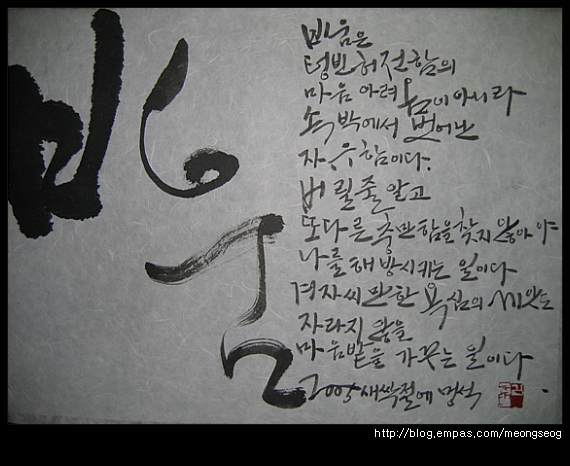 비움
비움은
텅빈 허전함의
마음 아려옴이 아니라
속박에서 벗어난
자유함이다.
버릴줄 알고
또다른 충만함을 찾지 않아야
나를 해방시키는 일이다
겨자씨만한 욕심의 씨앗도
자라지 않을
마음밭을 가꾸는 일이다
2005 새싹절에 멍석
http://blog.empas.com/meongseog